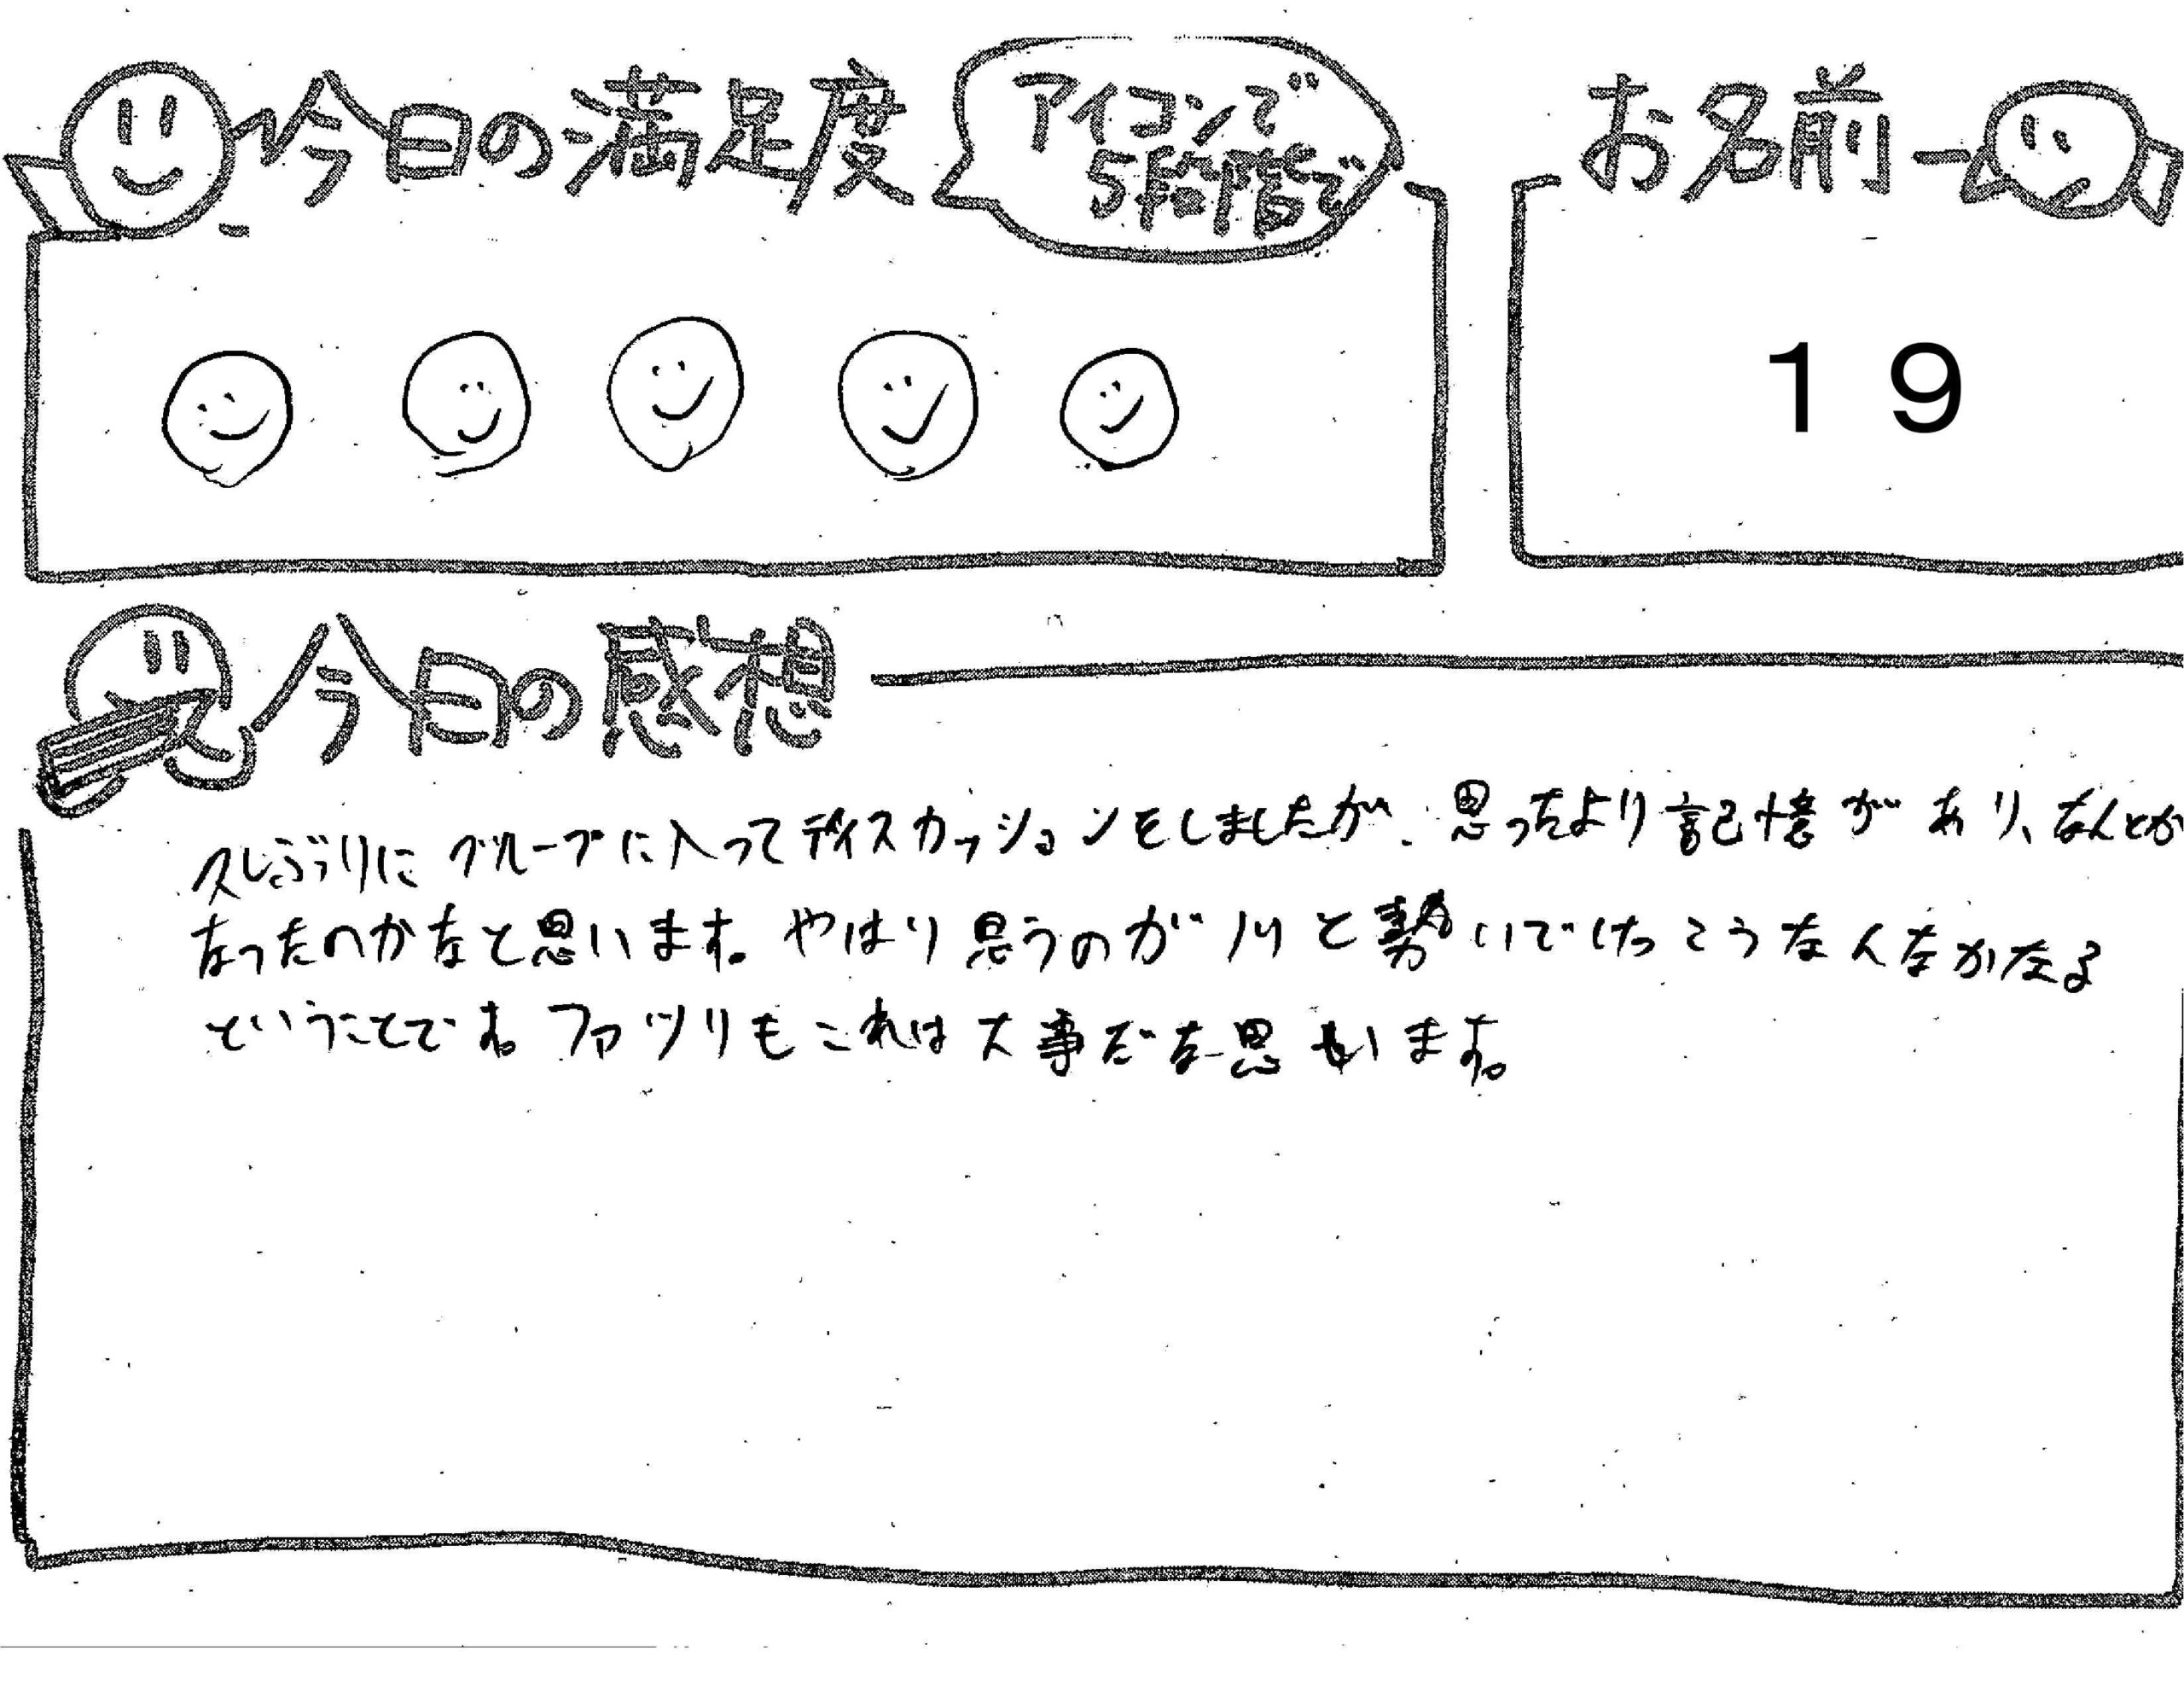 今日の満足度
アイコンで
5段階で
お名前
19
今日の感想
久しぶりにグループに入ってディスカッションをしましたが、思ったより記憶があり、なんとか
なったのかなと思います。やはり思うのがノリと勢いでけっこうなんとかなる
ということです。ファシリもこれは大事だな思います。